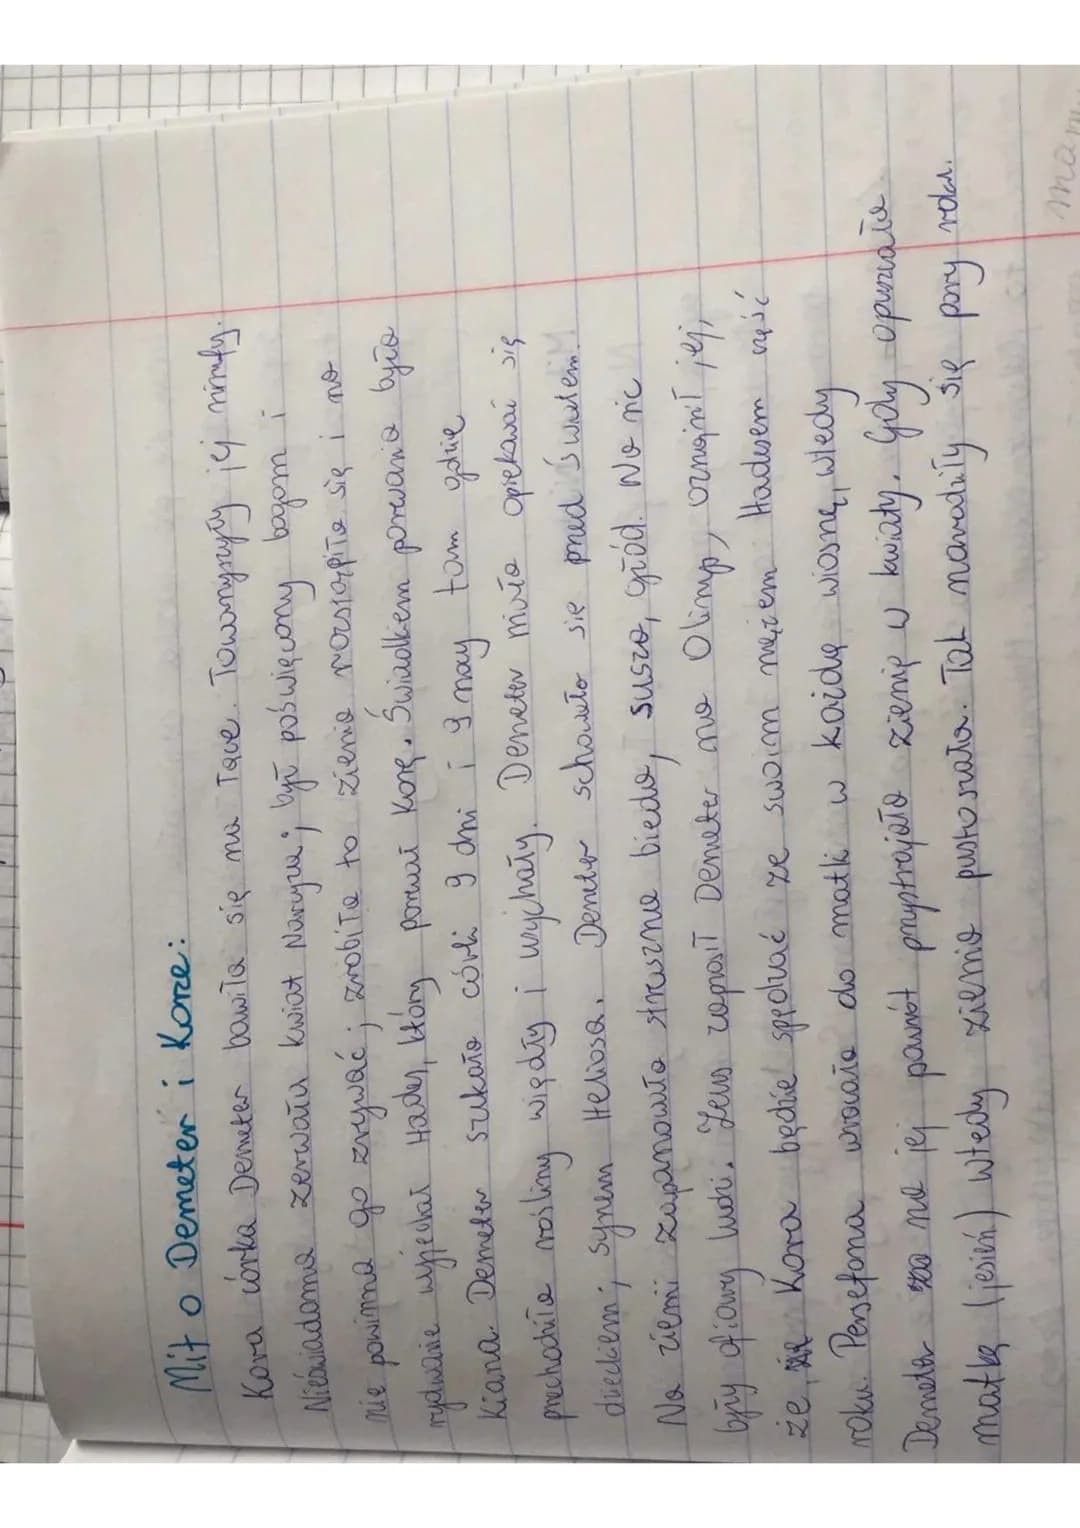 Mit o Demeter i Korze:
Kora córka Demeter bawiła się na łące. Towarzyszyły jej nimfy.
Nieświadoma zerwała kwiat Narcyza; był poświęcony bogom i
nie powinna go zrywać; zrobiła to ziemia rozstąpiła się i na
rydwanie wyjechał Hades, który porwał Korę. Świadkiem porwania była
Kiana. Demeter szukała córki 9 dni i 9 nocy tam gdzie
przechodziła rośliny więdły i usychały. Demeter miała opiekować się
dzieckiem, synem Heliosa. Demeter schowała się przed światem.
Na ziemi zapanowała straszna bieda, susza, głód. Na nic
były ofiary ludzi. Zeus zaprosił Demeter na Olimp, oznajmił jej,
że Kora będzie spędzać ze swoim mężem Hadesem część
roku. Persefona wracała do matki w każdą wiosnę, wtedy
Demeter na jej powrót przystrajała ziemię w kwiaty. Gdy opuszczała
matkę (jesień) wtedy ziemia pustoszała. Tak narodziły się pory roku.